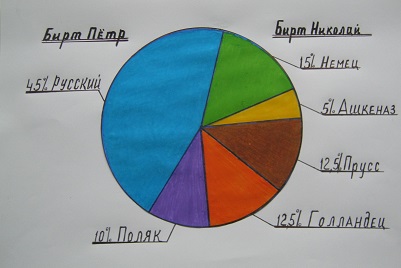 Бирт Пётр
Бирт Николай
45% Русский
15% Немец
5% Ашкеназ
12,5% Прусс
12,5% Голландец
10% Поляк